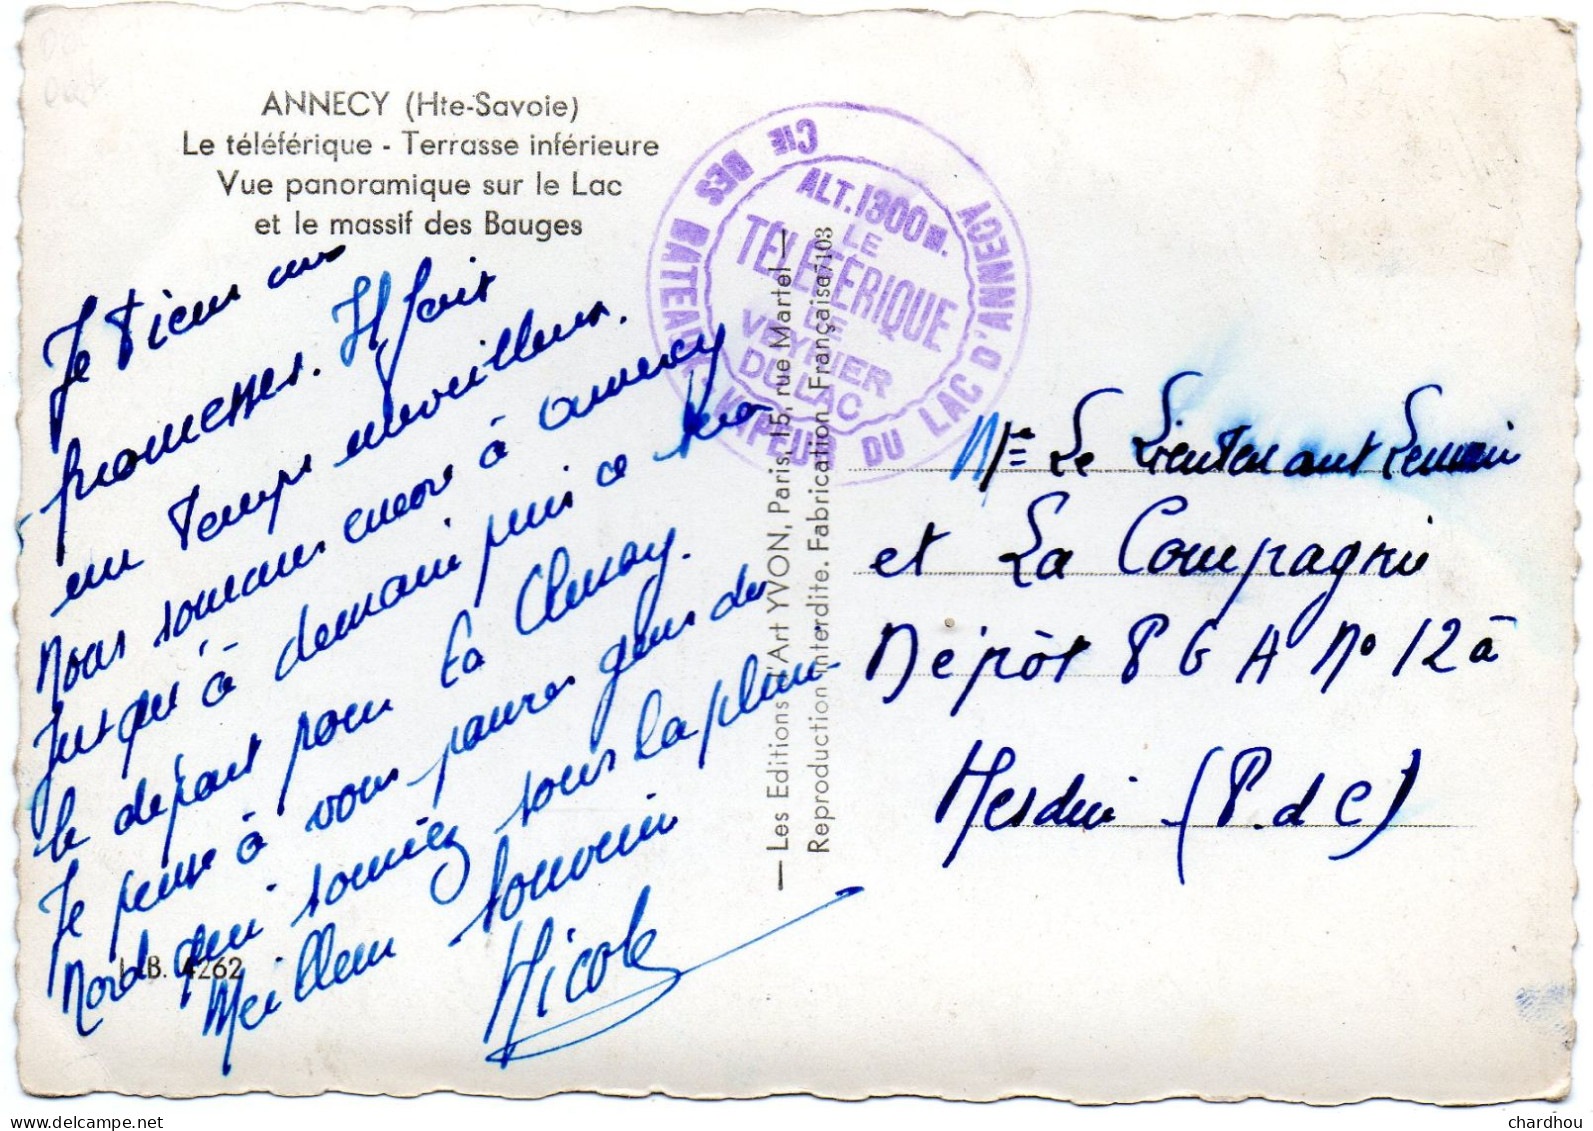 ANNECY (Hte-Savoie)
Le téléférique - Terrasse inférieure
Vue panoramique sur le Lac
et le massif des Bauges
CIE DES BATEAUX À VAPEUR DU LAC D'ANNECY
ALT. 1300 M.
LE
TÉLÉFÉRIQUE
DE
VEYRIER
DU LAC
Je tiens mes
promesses. Il fait
un temps merveilleux.
Nous sommes encore à annecy
jusqu'à demain puis ce sera
le départ pour La Clusay.
Je pense à vous pauvres gens du
Nord qui soyez sous la pluie
Meilleur souvenir
Nicole
L.B. 4262
— Les Editions d'Art YVON, Paris, 15, rue Martel —
Reproduction interdite. Fabrication Française/103
Mr Le Lieutenant
et La Compagnie
Dépôt P G A No 12 à
Hesdin (P. d C)
chardhou